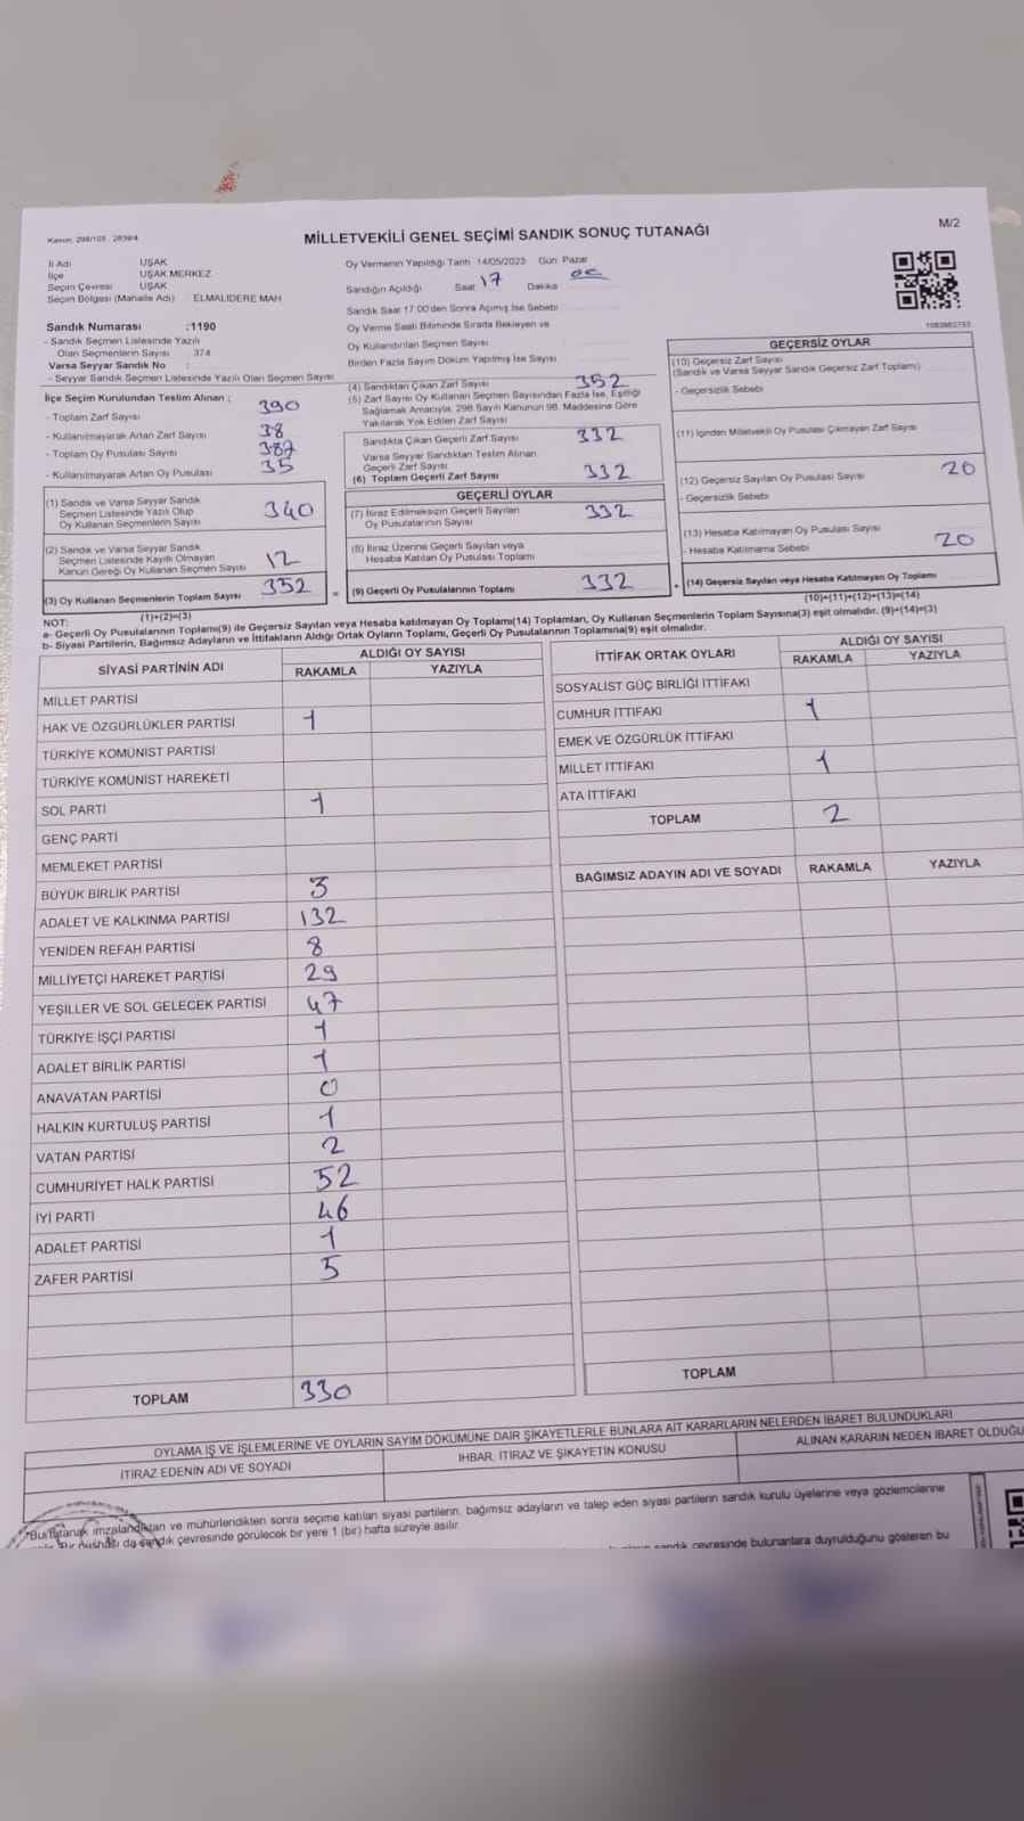 Kanun: 298/105 , 2839/4
MİLLETVEKİLİ GENEL SEÇİMİ SANDIK SONUÇ TUTANAĞI
M/2
İl Adı UŞAK
İlçe UŞAK MERKEZ
Seçim Çevresi UŞAK
Seçim Bölgesi (Mahalle Adı) ELMALIDERE MAH
Sandık Numarası :1190
- Sandık Seçmen Listesinde Yazılı
Olan Seçmenlerin Sayısı 374
Varsa Seyyar Sandık No :
- Seyyar Sandık Seçmen Listesinde Yazılı Olan Seçmen Sayısı
İlçe Seçim Kurulundan Teslim Alınan :
- Toplam Zarf Sayısı 390
- Kullanılmayarak Artan Zarf Sayısı 38
- Toplam Oy Pusulası Sayısı 387
- Kullanılmayarak Artan Oy Pusulası 35
(1) Sandık ve Varsa Seyyar Sandık
Seçmen Listesinde Yazılı Olup
Oy Kullanan Seçmenlerin Sayısı 340
(2) Sandık ve Varsa Seyyar Sandık
Seçmen Listesinde Kayıtlı Olmayan
Kanun Gereği Oy Kullanan Seçmen Sayısı 12
(3) Oy Kullanan Seçmenlerin Toplam Sayısı 352
(1)+(2)=(3)
Oy Vermenin Yapıldığı Tarih 14/05/2023 Gün: Pazar
Sandığın Açıldığı Saat 17 Dakika
Sandık Saat 17.00'den Sonra Açılmış İse Sebebi
Oy Verme Saati Bitiminde Sırada Bekleyen ve
Oy Kullandırılan Seçmen Sayısı
Birden Fazla Sayım Döküm Yapılmış İse Sayısı
(4) Sandıktan Çıkan Zarf Sayısı 352
(5) Zarf Sayısı Oy Kullanan Seçmen Sayısından Fazla İse, Eşitliği
Sağlamak Amacıyla, 298 Sayılı Kanunun 98. Maddesine Göre
Yakılarak Yok Edilen Zarf Sayısı
Sandıkta Çıkan Geçerli Zarf Sayısı 332
Varsa Seyyar Sandıktan Teslim Alınan
Geçerli Zarf Sayısı
(6) Toplam Geçerli Zarf Sayısı 332
GEÇERLİ OYLAR
(7) İtiraz Edilmeksizin Geçerli Sayılan
Oy Pusulalarının Sayısı 332
(8) İtiraz Üzerine Geçerli Sayılan veya
Hesaba Katılan Oy Pusulası Toplamı
= (9) Geçerli Oy Pusulalarının Toplamı 332
1083982753
GEÇERSİZ OYLAR
(10) Geçersiz Zarf Sayısı
(Sandık ve Varsa Seyyar Sandık Geçersiz Zarf Toplamı)
- Geçersizlik Sebebi
(11) İçinden Milletvekili Oy Pusulası Çıkmayan Zarf Sayısı
(12) Geçersiz Sayılan Oy Pusulası Sayısı 20
- Geçersizlik Sebebi
(13) Hesaba Katılmayan Oy Pusulası Sayısı
- Hesaba Katılmama Sebebi 20
+ (14) Geçersiz Sayılan veya Hesaba Katılmayan Oy Toplamı
(10)+(11)+(12)+(13)=(14)
NOT:
a- Geçerli Oy Pusulalarının Toplamı(9) ile Geçersiz Sayılan veya Hesaba katılmayan Oy Toplamı(14) Toplamları, Oy Kullanan Seçmenlerin Toplam Sayısına(3) eşit olmalıdır. (9)+(14)=(3)
b- Siyasi Partilerin, Bağımsız Adayların ve İttifakların Aldığı Ortak Oyların Toplamı, Geçerli Oy Pusulalarının Toplamına(9) eşit olmalıdır.
SİYASİ PARTİNİN ADI ALDIĞI OY SAYISI
RAKAMLA YAZIYLA
MİLLET PARTİSİ
HAK VE ÖZGÜRLÜKLER PARTİSİ 1
TÜRKİYE KOMÜNİST PARTİSİ
TÜRKİYE KOMÜNİST HAREKETİ
SOL PARTİ 1
GENÇ PARTİ
MEMLEKET PARTİSİ
BÜYÜK BİRLİK PARTİSİ 3
ADALET VE KALKINMA PARTİSİ 132
YENİDEN REFAH PARTİSİ 8
MİLLİYETÇİ HAREKET PARTİSİ 29
YEŞİLLER VE SOL GELECEK PARTİSİ 47
TÜRKİYE İŞÇİ PARTİSİ 1
ADALET BİRLİK PARTİSİ 1
ANAVATAN PARTİSİ 0
HALKIN KURTULUŞ PARTİSİ 1
VATAN PARTİSİ 2
CUMHURİYET HALK PARTİSİ 52
İYİ PARTİ 46
ADALET PARTİSİ 1
ZAFER PARTİSİ 5
TOPLAM 330
İTTİFAK ORTAK OYLARI ALDIĞI OY SAYISI
RAKAMLA YAZIYLA
SOSYALİST GÜÇ BİRLİĞİ İTTİFAKI
CUMHUR İTTİFAKI 1
EMEK VE ÖZGÜRLÜK İTTİFAKI
MİLLET İTTİFAKI 1
ATA İTTİFAKI
TOPLAM 2
BAĞIMSIZ ADAYIN ADI VE SOYADI RAKAMLA YAZIYLA
TOPLAM
OYLAMA İŞ VE İŞLEMLERİNE VE OYLARIN SAYIM DÖKÜMÜNE DAİR ŞİKAYETLERLE BUNLARA AİT KARARLARIN NELERDEN İBARET BULUNDUKLARI
İTİRAZ EDENİN ADI VE SOYADI İHBAR, İTİRAZ VE ŞİKAYETİN KONUSU ALINAN KARARIN NEDEN İBARET OLDUĞU
*Bu tutanak imzalandıktan ve mühürlendikten sonra seçime katılan siyasi partilerin, bağımsız adayların ve talep eden siyasi partilerin sandık kurulu üyelerine veya gözlemcilerine
Bir nüshası da sandık çevresinde görülecek bir yere 1 (bir) hafta süreyle asılır.
sandık çevresinde bulunanlara duyrulduğunu gösteren bu